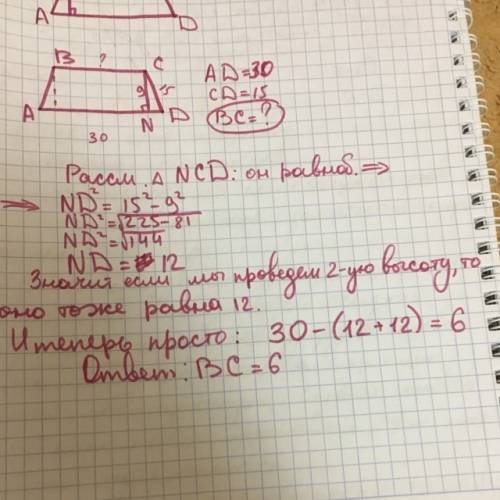 A D
B ? C
9 15
A N D
30
AD=30
CD=15
BC=?
Рассм. △ NCD: он равноб. ⇒
⇒ ND² = 15² - 9²
ND² = √225 - 81
ND² = √144
ND = 12
Значит если мы проведем 2-ую высоту, то
оно тоже равна 12.
И теперь просто: 30 - (12 + 12) = 6
Ответ: BC = 6